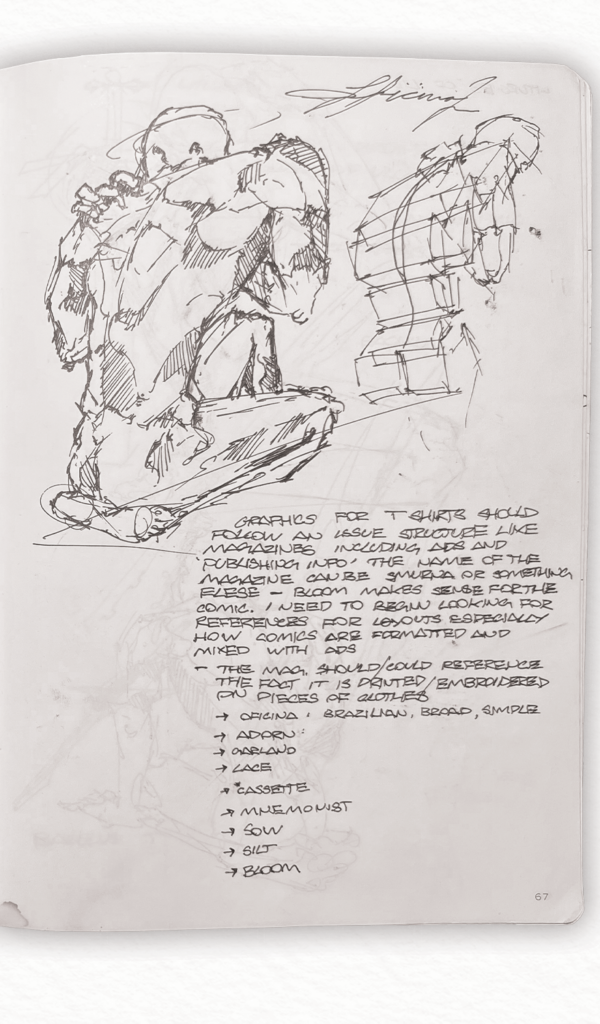 GRAPHICS FOR T SHIRTS SHOULD
FOLLOW AN ISSUE STRUCTURE LIKE
MAGAZINES INCLUDING ADS AND
'PUBLISHING INFO' THE NAME OF THE
MAGAZINE CAN BE SMURNA OR SOMETHING
ELESE - BLOOM MAKES SENSE FOR THE
COMIC. I NEED TO BEGIN LOOKING FOR
REFERENCES FOR LAYOUTS ESPECIALLY
HOW COMICS ARE FORMATTED AND
MIXED WITH ADS
- THE MAG. SHOULD/COULD REFERENCE
THE FACT IT IS PRINTED/EMBROIDERED
ON PIECES OF CLOTHES
→ OFICINA : BRAZILIAN, BROAD, SIMPLE
→ ADORN
→ GARLAND
→ LACE
→ *CASSETTE
→ MNEMONIST
→ SOW
→ SILT
→ BLOOM
67